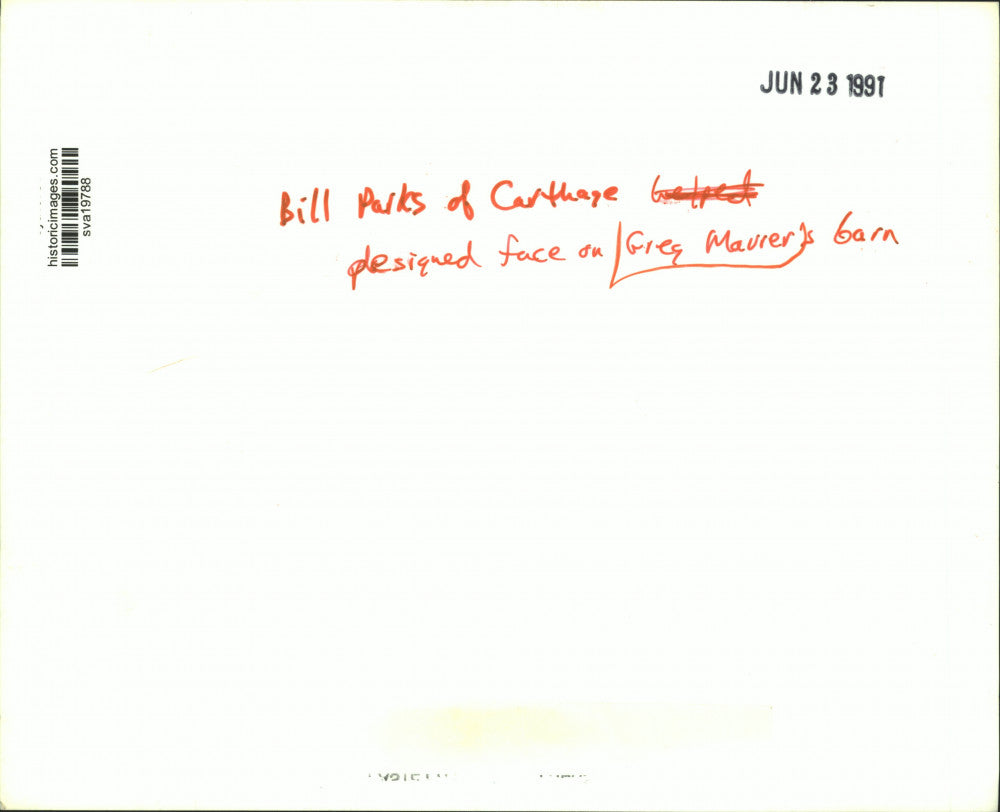 JUN 23 1991
historicimages.com
sva19788
Bill Parks of Carthage helped
designed face on Greg Maurer's barn